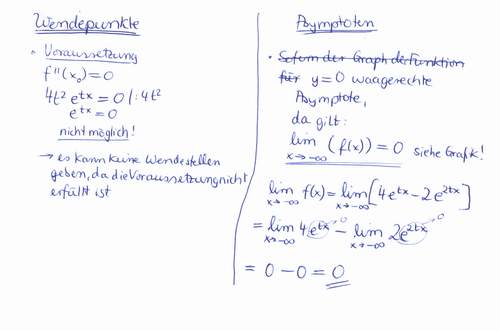 Wendepunkte
• Voraussetzung
f''(x₀)=0
4t² e^{tx} = 0 |: 4t²
e^{tx} = 0
nicht möglich!
→ es kann keine Wendestellen
geben, da die Voraussetzung nicht
erfüllt ist
Asymptoten
• Sofern der Graph der Funktion
für y=0 waagerechte
Asymptote,
da gilt:
lim (f(x)) = 0 siehe Grafik!
x→-∞
lim f(x) = lim [4e^{tx} - 2e^{2tx}]
x→-∞ x→-∞
= lim 4e^{tx}→0 - lim 2e^{2tx}→0
x→-∞ x→-∞
= 0 - 0 = 0